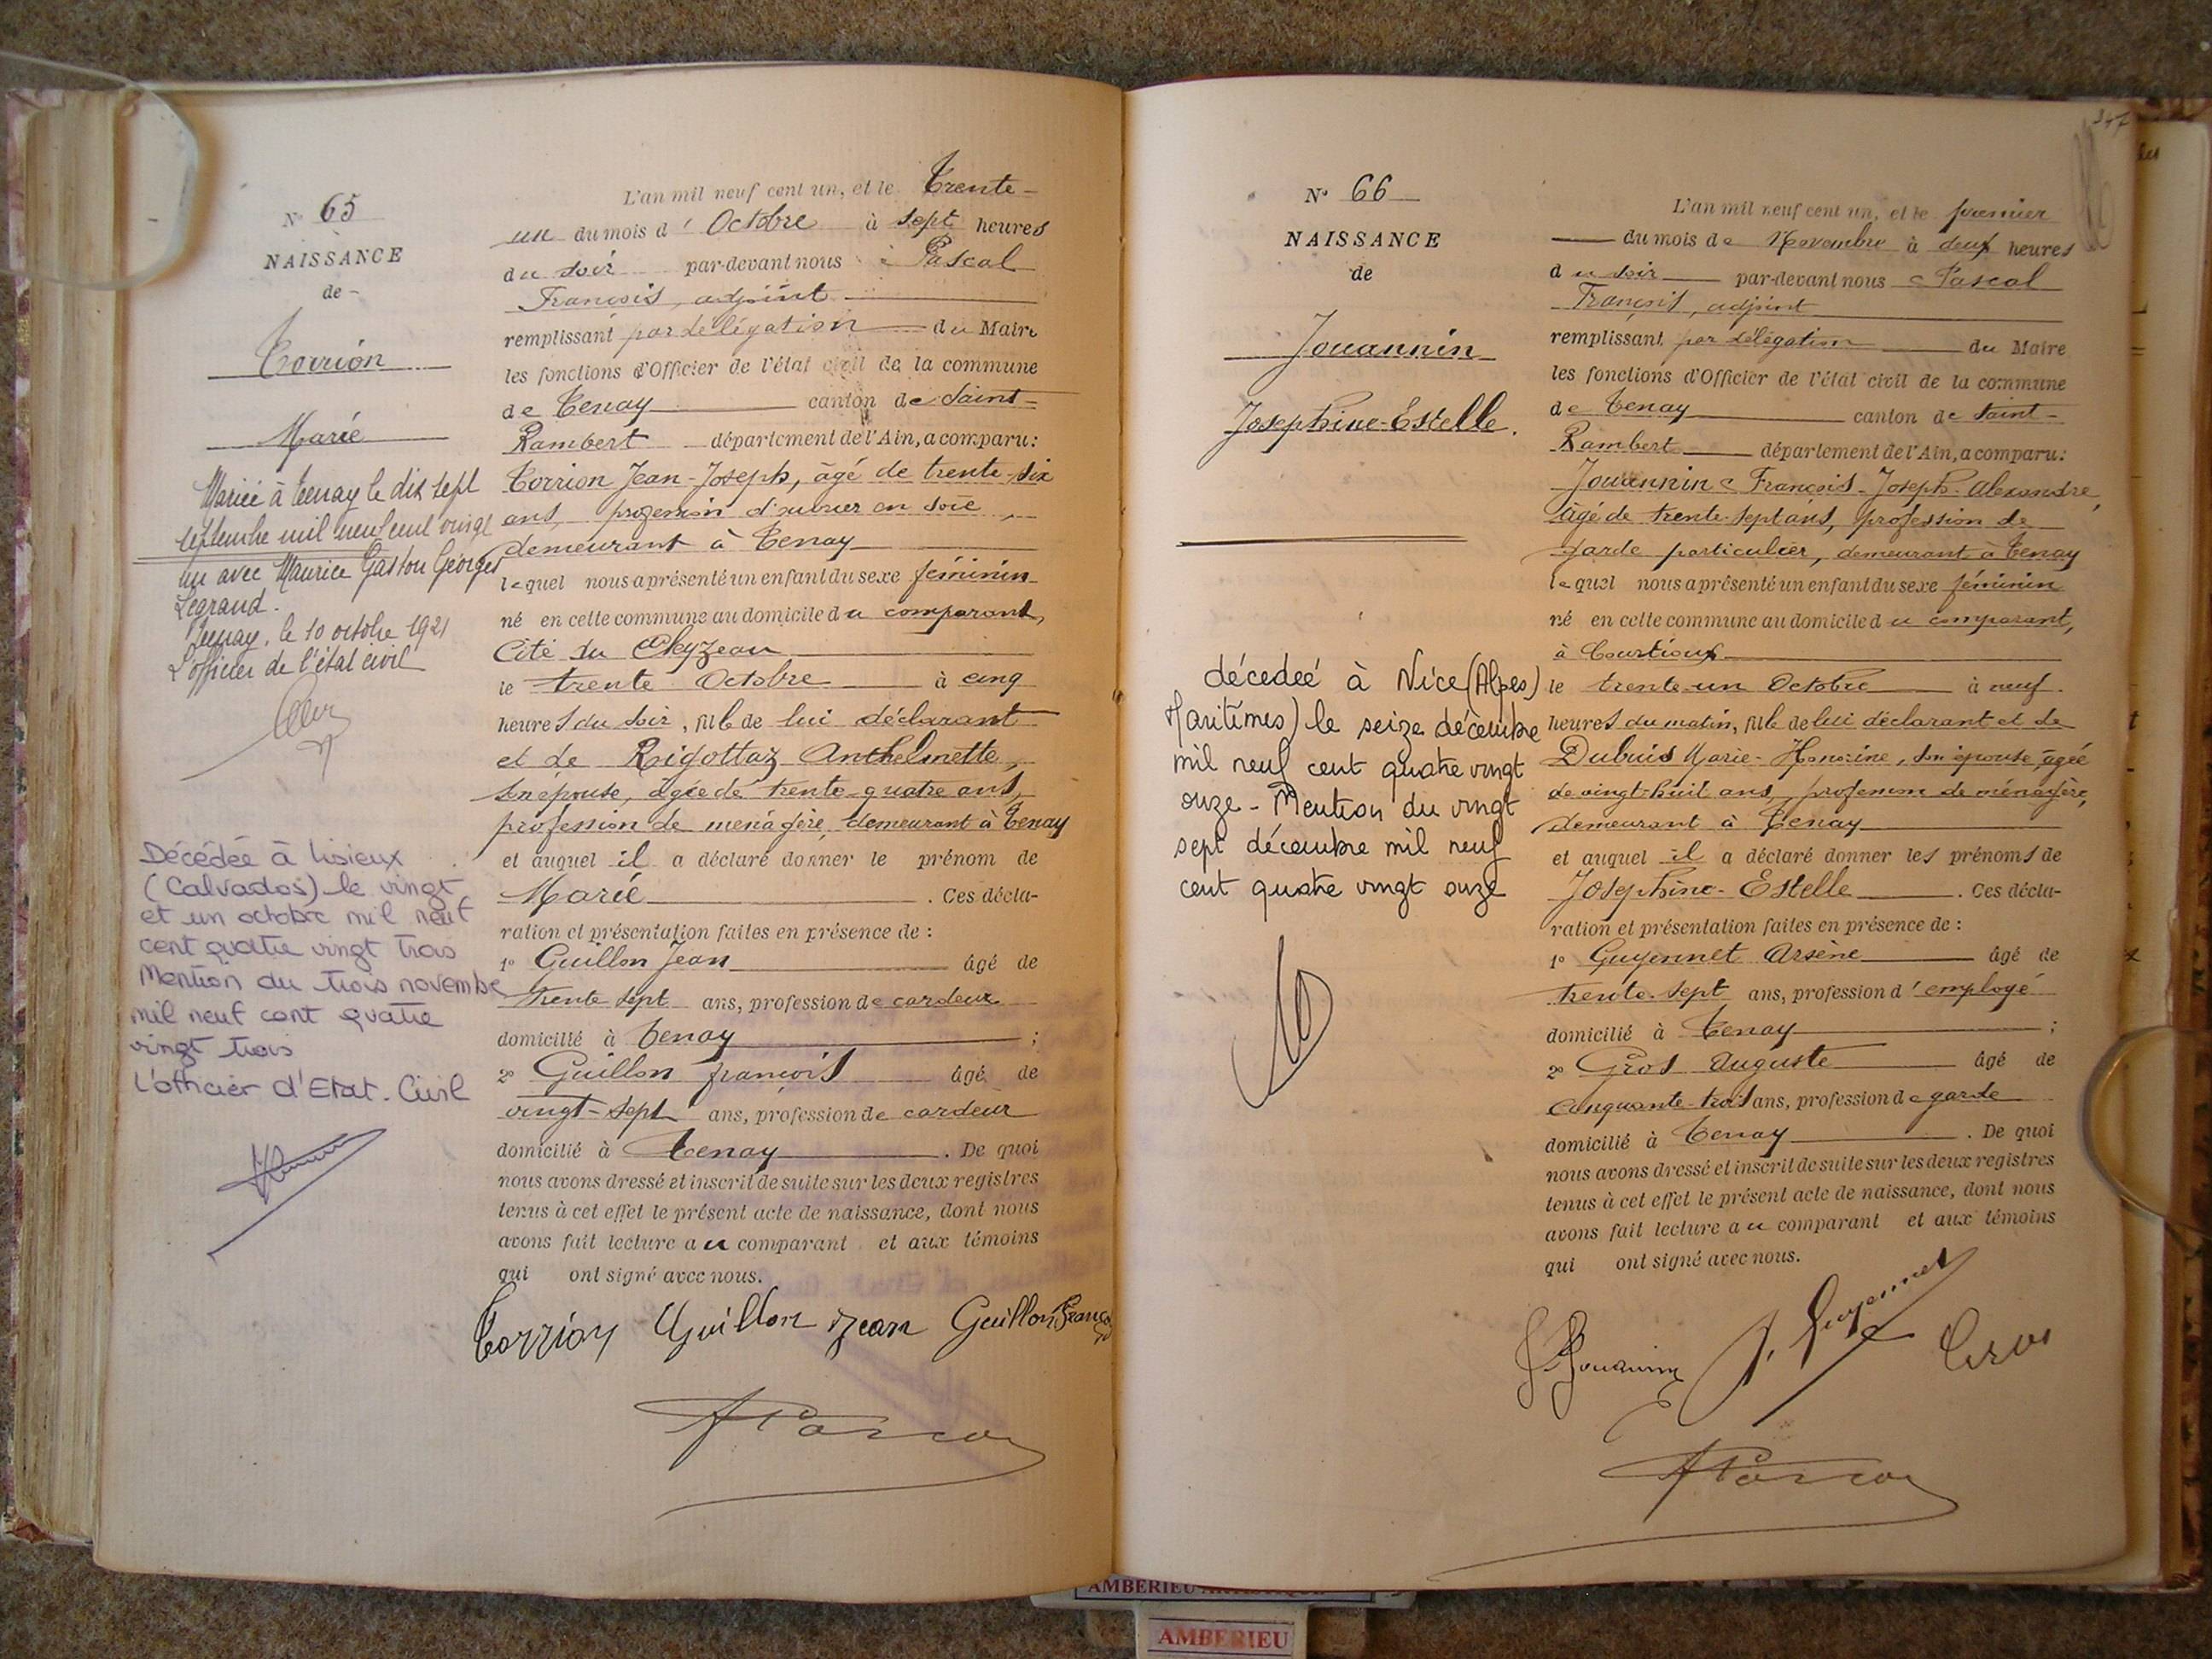 N° 65
NAISSANCE
de
Torrion
Marie
Mariée à Tenay le dix sept
septembre mil neuf cent vingt
un avec Maurice Gaston Georges
Legrand.
Tenay, le 10 octobre 1921
L'officier de l'état civil
Décédée à Lisieux
(Calvados) le vingt
et un octobre mil neuf
cent quatre vingt trois
Mention du trois novembre
mil neuf cent quatre
vingt trois
L'officier d'Etat. Civil
L'an mil neuf cent un, et le Trente-
un du mois d'Octobre à sept heures
du soir par-devant nous Pascal
François, adjoint
remplissant par délégation du Maire
les fonctions d'Officier de l'état civil de la commune
de Tenay canton de Saint-
Rambert département de l'Ain, a comparu:
Torrion Jean-Joseph, âgé de trente-six
ans, profession d'ouvrier en soie,
demeurant à Tenay
lequel nous a présenté un enfant du sexe féminin
né en cette commune au domicile du comparant,
Cité du
le trente Octobre à cinq
heures du soir, fille de lui déclarant
et de Rigottaz Anthelmette,
son épouse, âgée de trente-quatre ans,
profession de menagère, demeurant à Tenay
et auquel il a déclaré donner le prénom de
Marie . Ces décla-
ration et présentation faites en présence de :
1° Guillon Jean âgé de
trente sept ans, profession de cardeur
domicilié à Tenay ;
2° Guillon françois âgé de
vingt-sept ans, profession de cardeur
domicilié à Tenay . De quoi
nous avons dressé et inscrit de suite sur les deux registres
tenus à cet effet le présent acte de naissance, dont nous
avons fait lecture au comparant et aux témoins
qui ont signé avec nous.
Torrion Guillon jean Guillon Franço
APascal
347
N° 66
NAISSANCE
de
Jouannin
Josephine-Estelle.
décedeé à Nice (Alpes)
Maritimes) le seize décembre
mil neuf cent quatre vingt
onze - Mention du vingt
sept décembre mil neuf
cent quatre vingt onze
L'an mil neuf cent un, et le premier
du mois de Novembre à deux heures
du soir par-devant nous Pascal
François, adjoint
remplissant par délégation du Maire
les fonctions d'Officier de l'état civil de la commune
de Tenay canton de Saint-
Rambert département de l'Ain, a comparu:
Jouannin François-Joseph-Alexandre,
âgé de trente-sept ans, profession de
garde particulier, demeurant à Tenay
lequel nous a présenté un enfant du sexe féminin
né en cette commune au domicile du comparant,
à Courtioux
le trente-un Octobre à neuf
heures du matin, fille de lui déclarant et de
Dubuis Marie-Honorine, son épouse, âgée
de vingt-huit ans, profession de ménagère,
demeurant à Tenay
et auquel il a déclaré donner les prénoms de
Josephine-Estelle . Ces décla-
ration et présentation faites en présence de :
1° Guyennet Arsène âgé de
trente-sept ans, profession d'employé
domicilié à Tenay ;
2° Gros Auguste âgé de
cinquante-trois ans, profession de garde
domicilié à Tenay . De quoi
nous avons dressé et inscrit de suite sur les deux registres
tenus à cet effet le présent acte de naissance, dont nous
avons fait lecture au comparant et aux témoins
qui ont signé avec nous.
Jouannin Guyennet Gros
APascal
AMBERIEU
AMBERIEU